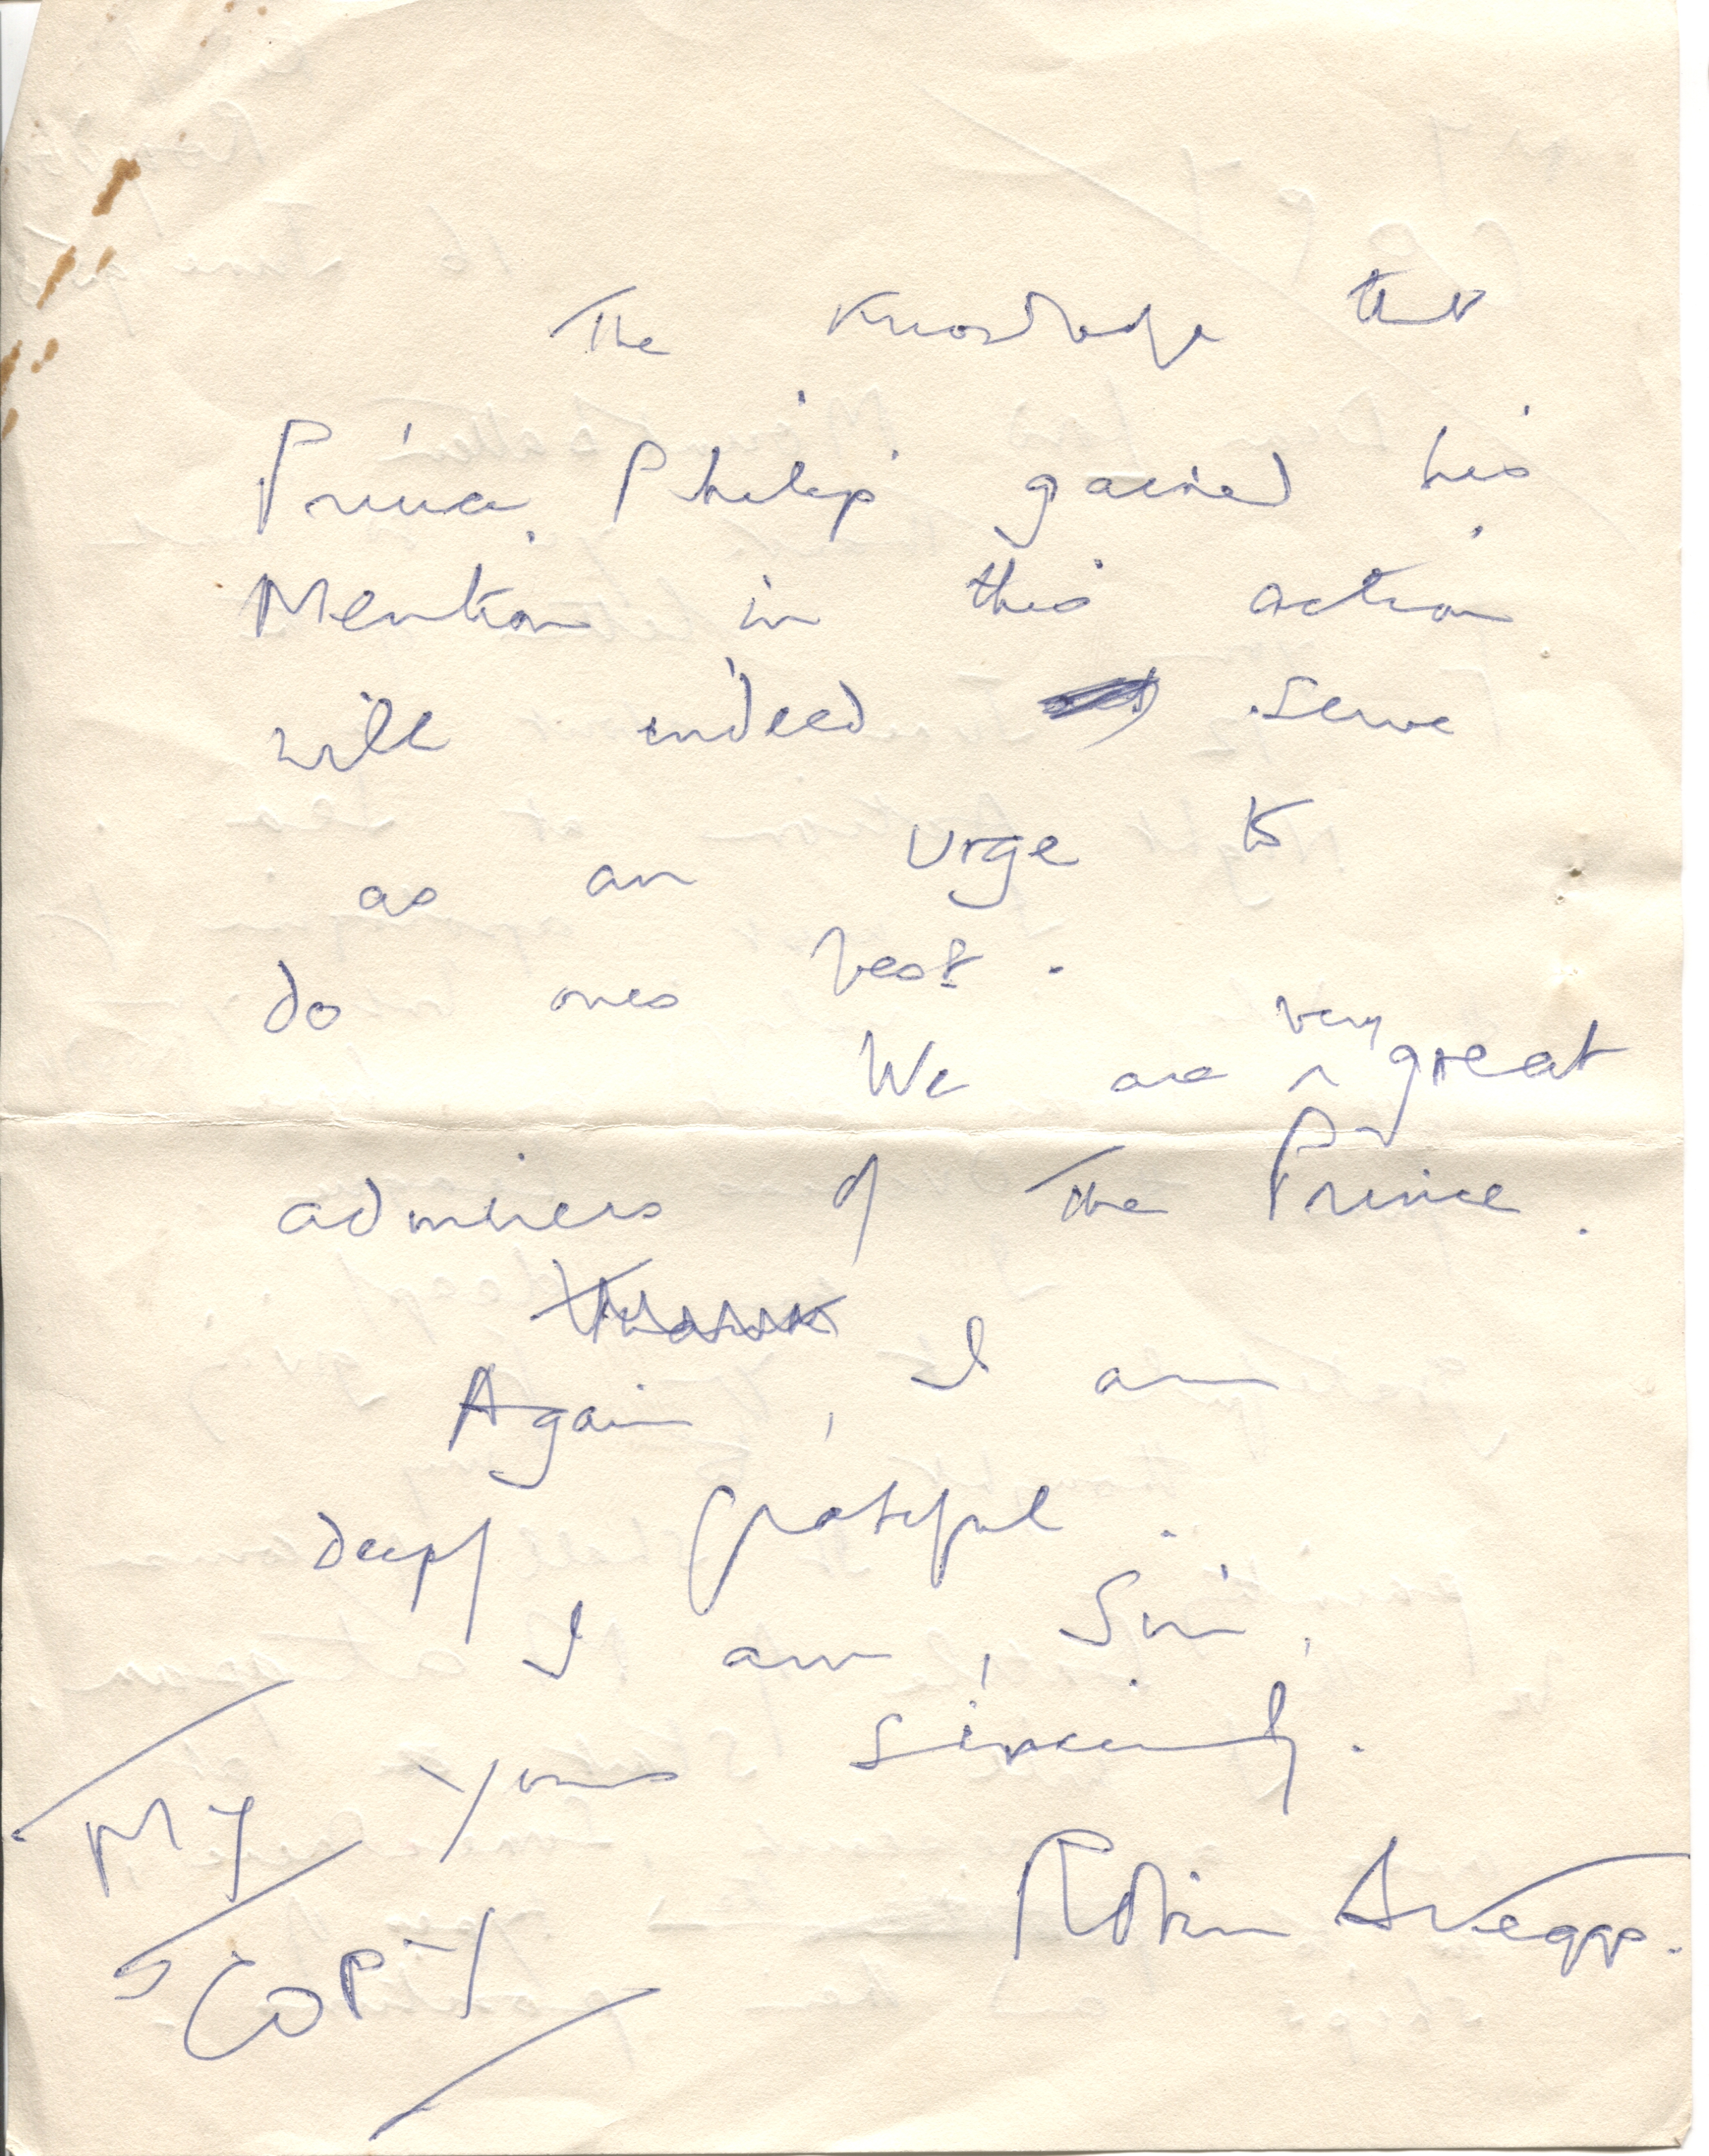 The Knowledge that
Prince Philip gained his
Mention in this action
will indeed serve
as an urge to
do ones best.
We are very great
admirers of The Prince.
Thank
Again, I am
deeply grateful.
I am, Sir,
Yours sincerely.
Robin
MY
COPY